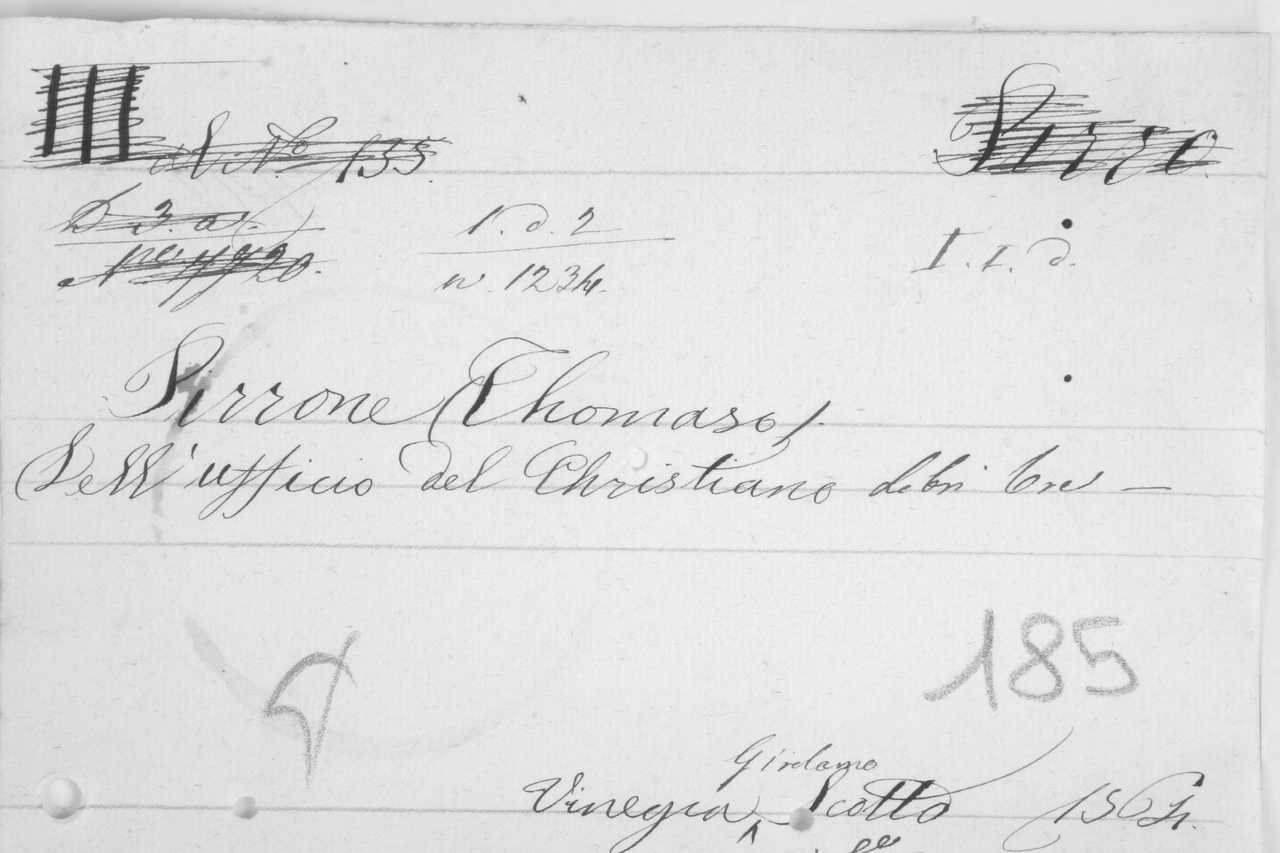 III
N.o 135. Pizzo.
D 3. a.
1. d. 2 I. I. d.
n. 1234.
Pirrone (Thomaso).
Dell'ufficio del Christiano libri tre —
185
Girolamo
Vinegia, Scotto